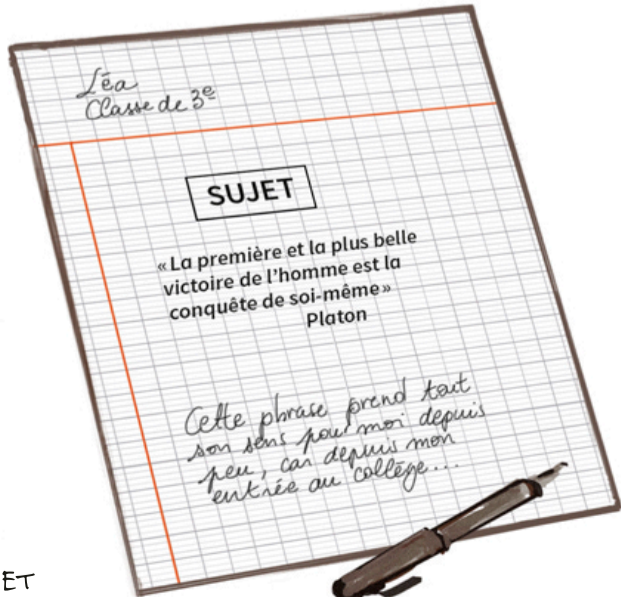 Léa
Classe de 3e
SUJET
«La première et la plus belle
victoire de l'homme est la
conquête de soi-même»
Platon
Cette phrase prend tout
son sens pour moi depuis
peu, car depuis mon
entrée au collège...
ET